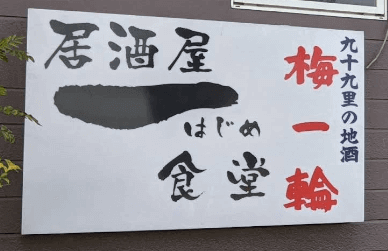 九十九里の地酒
梅一輪
居酒屋
一
はじめ
食堂